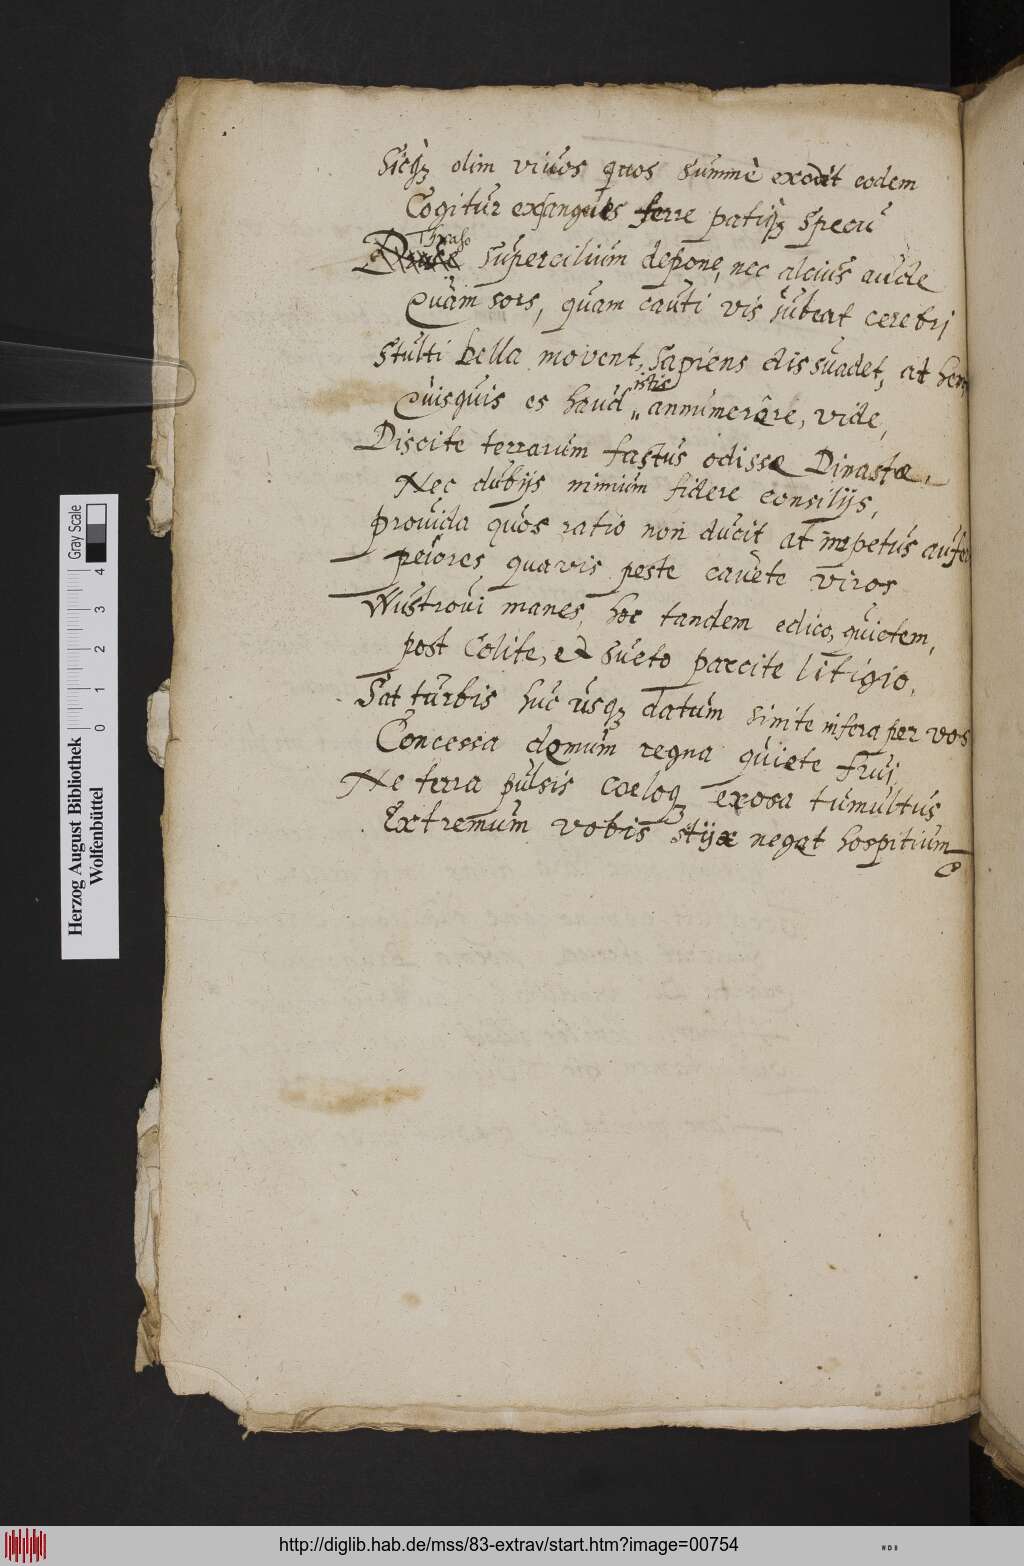 Sicq́ꝫ olim viuos quos summè exodit eodem
Cogitur exsangues ferre patiq́ꝫ specu
Thraso
supercilium depone, nec alcius aude
Quàm sors, quam cauti vis iubeat cerebri
Stulti bella movent, sapiens dissuadet, at heu,
istis
Quisquis es haud " annumerâre, vide,
Discite terrarum fastus odisse Dinastæ,
Nec dubijs nimium fidere consilijs,
prouida quos ratio non ducit at impetus aufert
peiores quavis peste cauète viros
Wustroui manes, hoc tandem edico, quietem,
post Colite, et sueto parcite litigio.
Sat turbis huc usqꝫ datum sinite infera per vos
Concessa domum regna quiete frui,
Ne terra pulsis coeloqꝫ exosa tumultus
Extremum vobis styx negat hospitium
Herzog August Bibliothek
Wolfenbüttel
0 1 2 3 4
Gray Scale
http://diglib.hab.de/mss/83-extrav/start.htm?image=00754